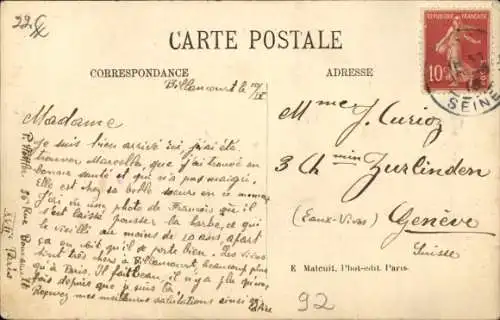 22.
CARTE POSTALE
CORRESPONDANCE
ADRESSE
REPUBLIQUE FRANÇAISE
10
SEINE
Billancourt le
Madame
Je suis bien arrivé ici, j'ai été
trouver Marcelle, que j'ai trouvé en
bonne santé et qui n'a pas maigri.
Elle est chez sa belle soeur en ce moment
J'ai vu une photo de François qu'il
s'est laissé pousser la barbe, ce qui
le vieilli au moins de 10 ans, apart
ça on voit qu'il se porte bien. Les vins
sont très chers à Billancourt, beaucoup plus
qu'à Paris. Il fait beau, il n'a plu qu'une
fois depuis que je suis là.
Recevez mes meilleures salutations ainsi qu'à
56 Rue
Paris
Mme J. Curioz
3 Chmin Zurlinden
(Eaux-Vives) Genève
Suisse
E Maleuit, Phot-édit. Paris.
92